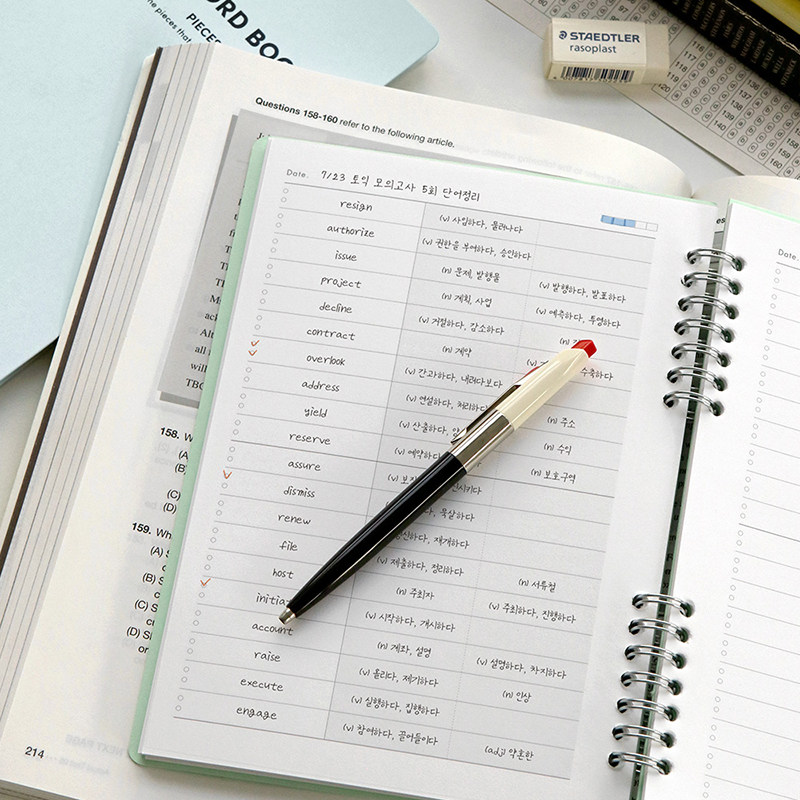 WORD BOOK
PIECES
STAEDTLER
rasoplast
Questions 158-160 refer to the following article.
Date. 7/23 토익 모의고사 5회 단어정리
resign (v) 사임하다, 물러나다
authorize (v) 권한을 부여하다, 승인하다
issue (n) 문제, 발행물 (v) 발행하다, 발표하다
project (n) 계획, 사업 (v) 예측하다, 투영하다
decline (v) 거절하다, 감소하다 (n)
contract (n) 계약 (v) 수축하다
overlook (v) 간과하다, 내려다보다
address (v) 연설하다, 처리하다 (n) 주소
yield (v) 산출하다, (n) 수익
reserve (v) 예약하다 (n) 보호구역
assure (v)
dismiss 묵살하다
renew 재개하다
file (v) 제출하다, 정리하다 (n) 서류철
host (n) 주최자 (v) 주최하다, 진행하다
initia (v) 시작하다, 개시하다
account (n) 계좌, 설명 (v) 설명하다, 차지하다
raise (v) 올리다, 제기하다 (n) 인상
execute (v) 실행하다, 집행하다
engage (v) 참여하다, 끌어들이다 (adj) 약혼한
158.
(A)
(B)
(C)
(D)
159.
(A)
(B)
(C)
(D)
214
Date.